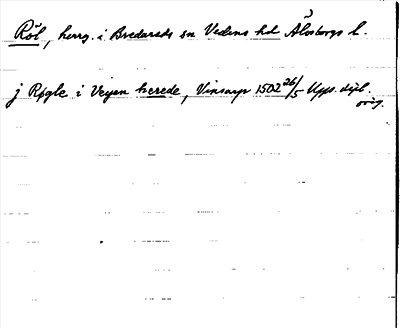 Röl, herrg. i Bredareds sn Vedens hd Älvsborgs l.
j Røgle i Veyen herede, Vinsarp 1502 26/5 Upps. dipl.
orig.